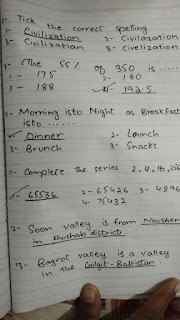 1- Tick the correct spelling
1- Civilization 2- Civilazation
3- Civilizatian 3- Civelization
The 55% of 350 is .....
1- 175 2- 180
3- 188 4- 192.5
Morning isto Night as Breakfast
isto .....
Dinner 2- Launch
3- Brunch 3- Snacks
Complete the series 2, 4, 16, 256
65536 2- 65426 3- 4896
4- 75432
12- Soon valley is from Naushera
in Khushab district
13- Bagrot valley is a valley
in the Gilgit-Baltistan.